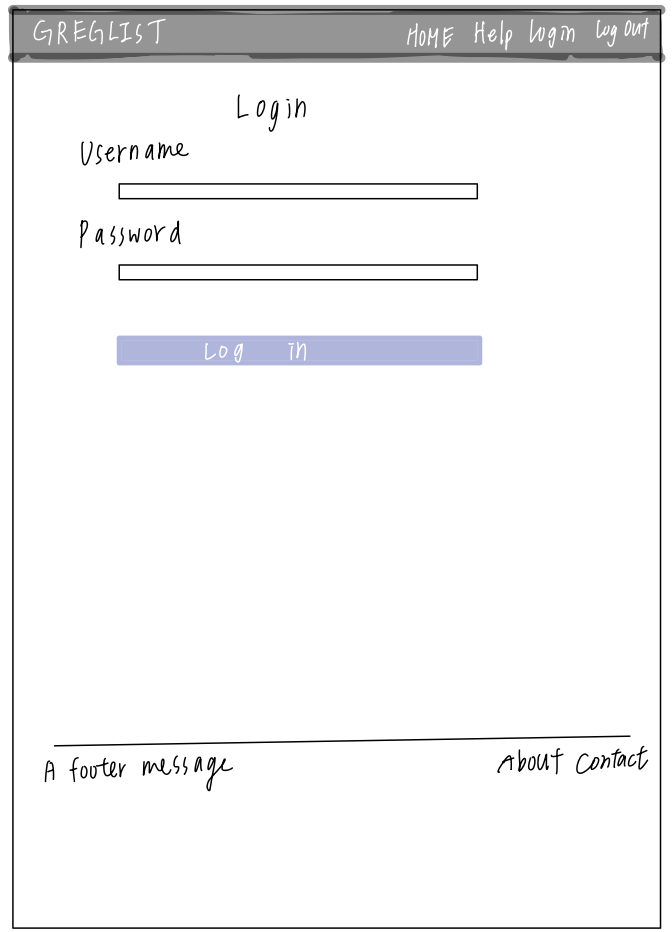 GREGLIST HOME Help Login Log Out
Login
Username
Password
Log in
A footer message About Contact